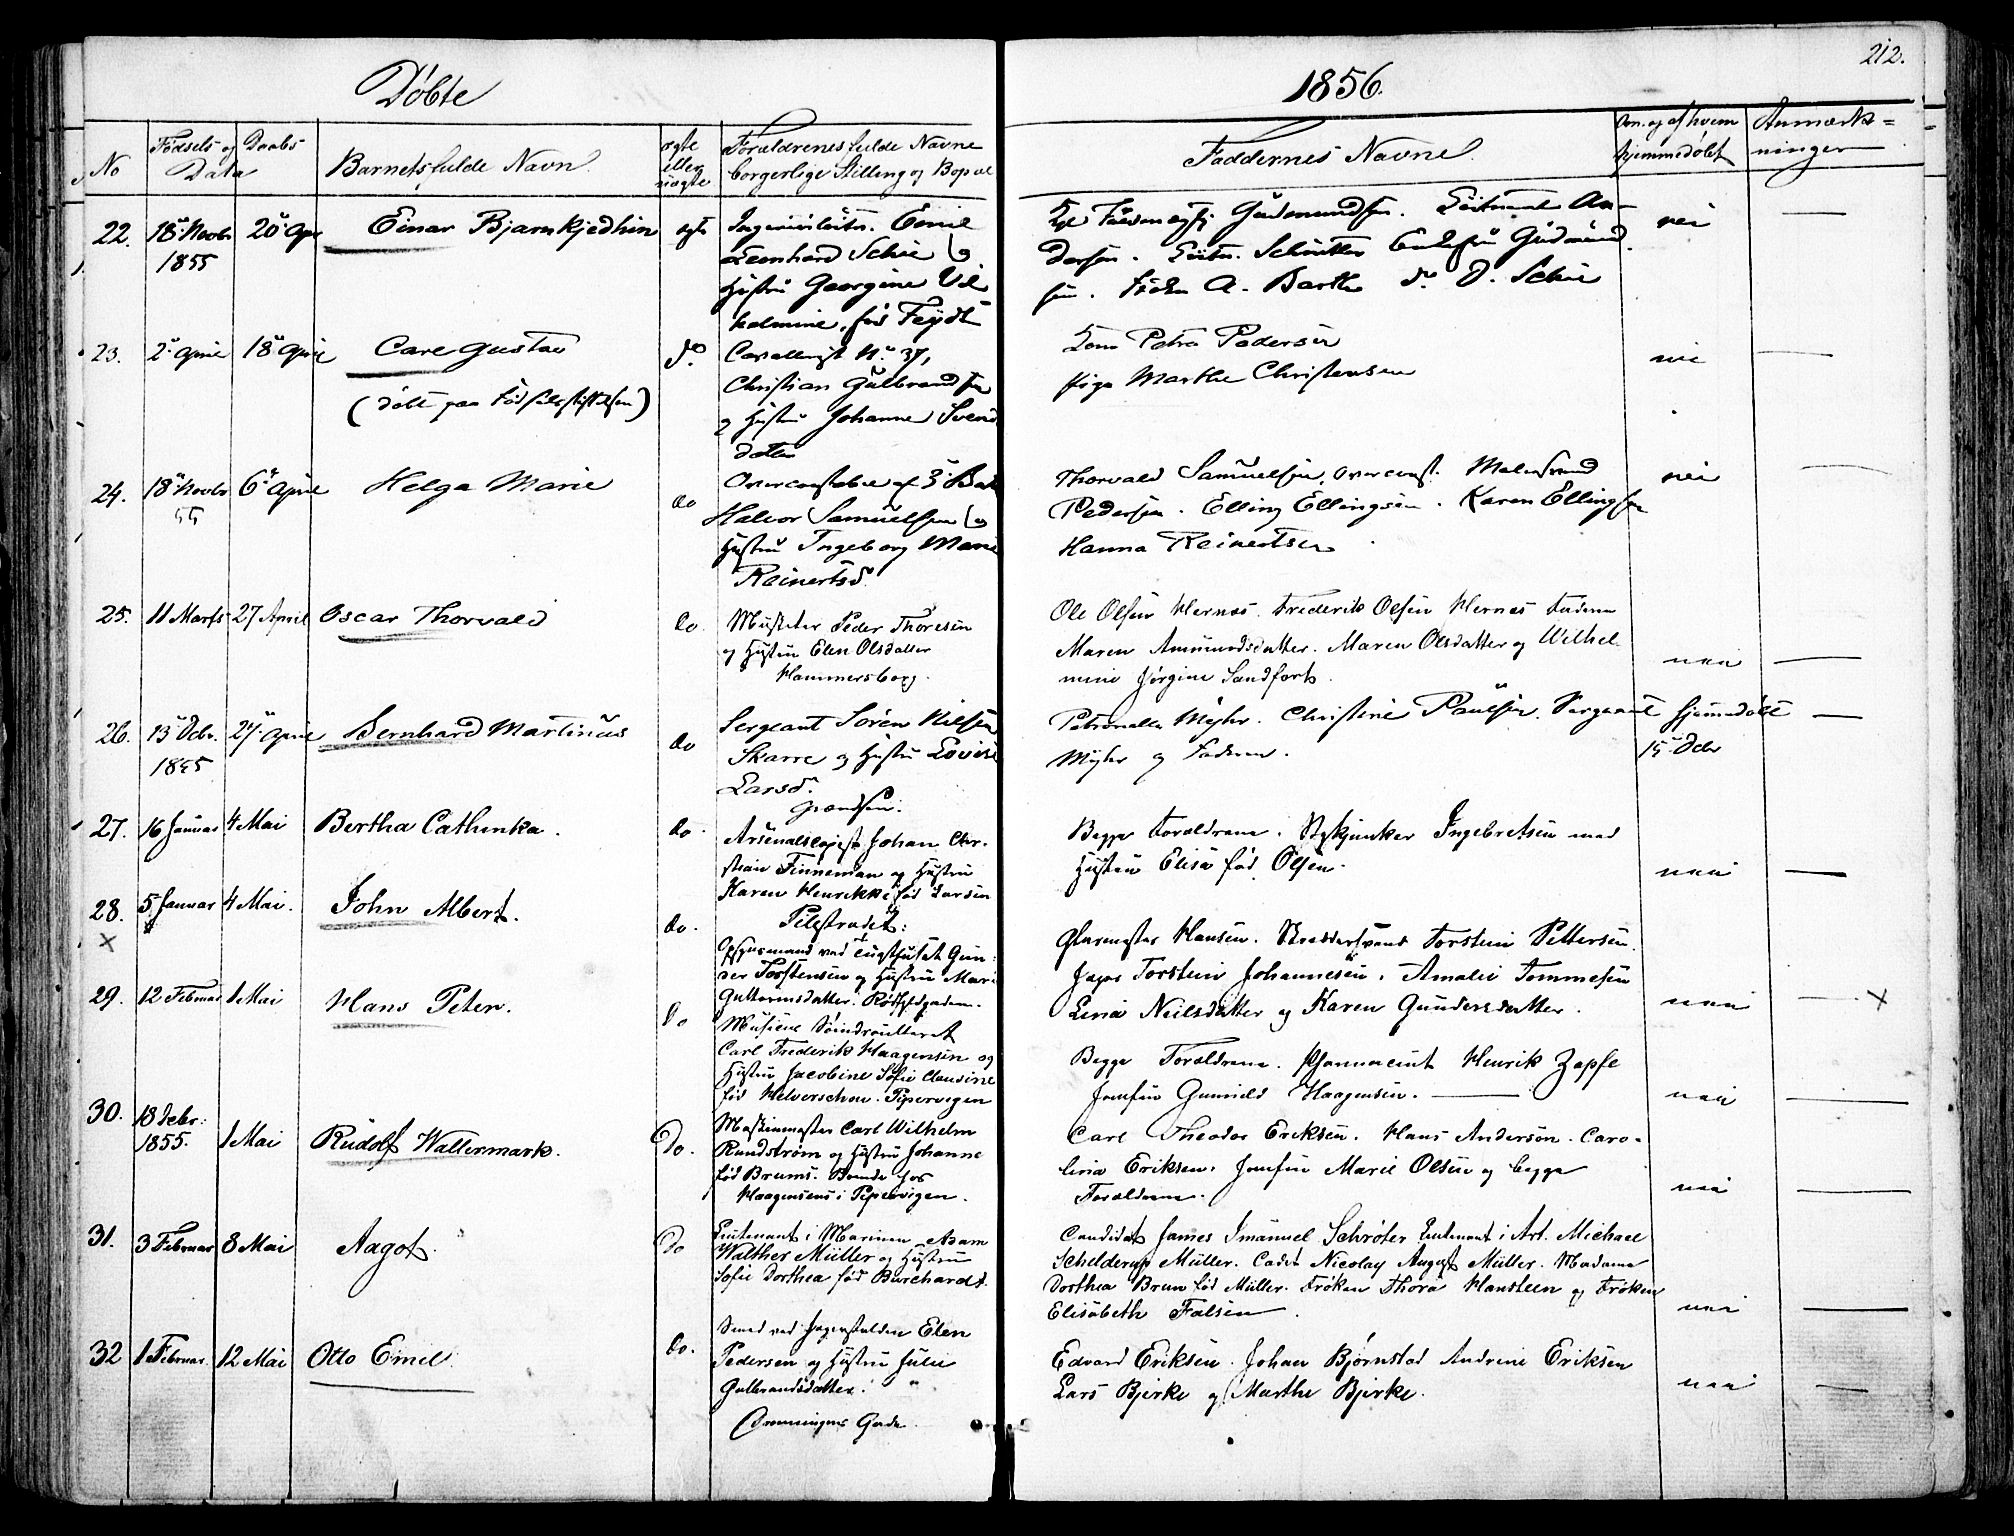 Døbte
1856.
212.
No
Fødsels og Daabs
Data
Barnets fulde Navn.
ægte
eller
uægte
Forældrenes fulde Navne
borgerlige Stilling og Bopæl
Faddernes Navne.
Om og af hvem
hjemmedøbt
Anmærk=
ninger
22.
18 Novbr
1855
20 Apr
Einar Bjarn
ægte
Emil
Leonhard Schie og
Hustru Georgine Vil
helmine, fød Feydt
Gudmundsen. Lieutnant An-
dersen. Gudmund
sen. A. Barth do D. Schie
nei
23.
2 April
18 April
Carl Gustav
(døbt paa Fødselsstiftelsen)
do.
No 37,
Christian Gulbrandsen
og Hustru Johanne Svends
datter
Kone Petra Pedersen
Pige Marthe Christensen
nei
24.
18 Novbr
55
6 April
Helga Marie
do
Overconstabel af 3 Bat
Halvor Samuelsen og
Hustru Ingeborg Marie
Reinertsd.
Thorvald Samuelsen, Overconst.
Pedersen. Elling Ellingsen. Karen Ellingsen
Hanna Reinertsen
nei
25.
11 Marts
27 April
Oscar Thorvald
do.
Musketer Peder Thoresen
og Hustru Elen Olsdatter
Hammersborg.
Ole Olsen Hernes. Frederik Olsen Hernes Faderen
Maren Amundsdatter. Maren Olsdatter og Wilhel
mine Jørgine Sandfort.
nei
26.
13 Dcbr.
1855
27 April
Bernhard Martinus
do
Sergeant Søren Nilsen
Skarre og Hustru Lovise
Larsd.
Grændsen.
Petronelle Myhr. Christine Paulsen. Sergeant
Myhr og Faderen.
hjemmedøbt
15 Dcbr
27.
16 Januar
4 Mai
Bertha Cathinka.
do.
Johan Chr.
stian Finneman og Hustru
Karen Henrikke fød Larsen
Pilestrædet.
Begge Forældrene. Stykjunker Ingebretsen med
Hustru Elise fød Olsen.
nei
28.
5 Januar
4 Mai.
John Albert.
do.
Opsynsmand ved Tugthuset Gun-
der Torstensen og Hustru Mari
Guttormsdatter. Rødfyldgaden.
Glarmester Hansen. Skreddersvend Torstein Pettersen.
Torstein Johannesen. Amalie Tommesen
Lina Neilsdatter og Karen Gundersdatter.
nei
29.
12 Februar
1 Mai
Hans Peter.
do
Carl Frederik Haagensen og
Hustru Jacobine Sofie Clausine
fød Helverschou. Pipervigen
Begge Forældrene. Pharmaceut Henrik Zapfe
Jomfru Gunnild Haagensen.
nei
30.
18 Dcbr:
1855.
1 Mai
Rudolf Waltermark.
do.
Maskinmester Carl Wilhelm
Rundstrøm og Hustru Johanne
fød Bruns. Boende hos
Haagensens i Pipervigen.
Carl Theodor Eriksen. Hans Anderson. Caro-
line Eriksen. Jomfru Marie Olsen og begge
Forældrene.
nei
31.
3 Februar
8 Mai
Aagot.
do
Lieutenant i Marinen Adam
Walther Müller og Hustru
Sofie Dorthea fød Burchardt.
Candidat James Imanuel Schrøter Lieutenant i Art. Michael
Schelderup Müller. Cadet Nicolay August Müller. Madame
Dorthea Brun fød Müller. Frøken Thora Hansteen og Frøken
Elisabeth Falsen.
nei
32
1 Februar.
12 Mai
Otto Emil.
do.
Smed ved Elen
Pedersen og Hustru Julie
Gulbrandsdatter.
Dronningens Gade.
Edvard Eriksen. Johan Bjørnstad Andrine Eriksen
Lars Bjerke og Marthe Bjerke.
nei